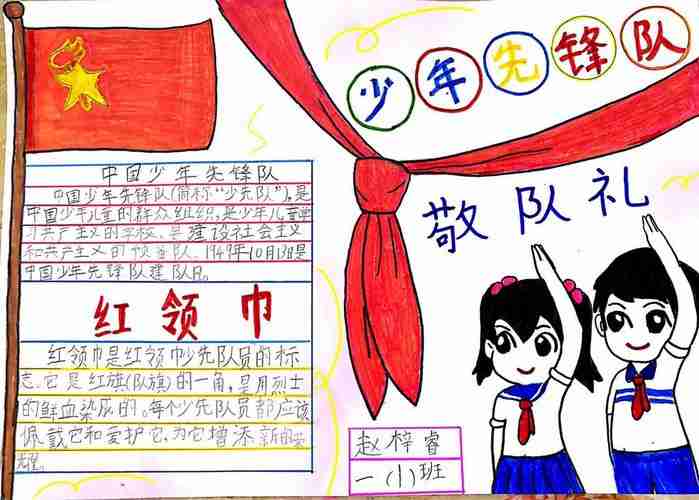 少年先锋队
敬队礼
中国少年先锋队
中国少年先锋队(简称“少先队”),是
中国少年儿童的群众组织,是少年儿童学
习共产主义的学校,是建设社会主义
和共产主义的预备队。1949年10月13日是
中国少年先锋队建队日。
红领巾
红领巾是红领巾少先队员的标
志。它是红旗(队旗)的一角,是用烈士
的鲜血染成的。每个少先队员都应该
佩戴它和爱护它,为它增添新的荣
耀。
赵梓睿
一(1)班